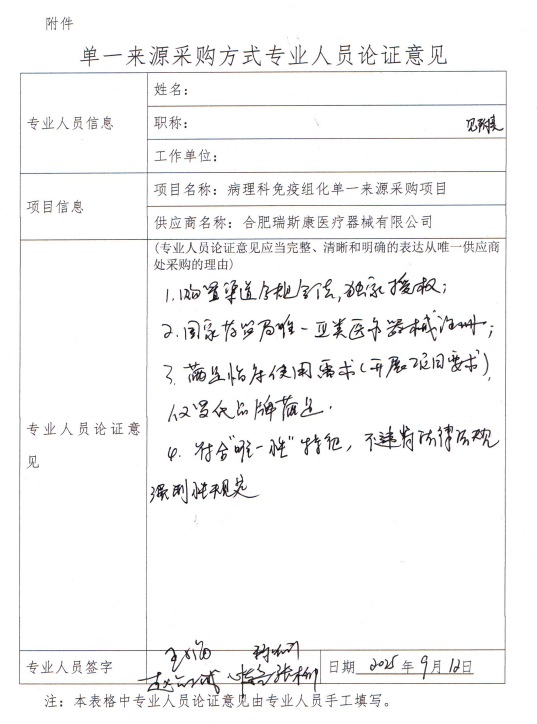 附件
单一来源采购方式专业人员论证意见
专业人员信息
姓名：
职称：
工作单位：
项目信息
项目名称：病理科免疫组化单一来源采购项目
供应商名称：合肥瑞斯康医疗器械有限公司
专业人员论证意见
(专业人员论证意见应当完整、清晰和明确的表达从唯一供应商
处采购的理由)
1.购置渠道合规合法，独家授权；
2.国家药监局唯一 类医疗器械注册；
3.满足临床使用需求(开展项目要求)，
仅 品牌满足.
4.符合"唯一性"特征，不违背法律法规
强制性规定
专业人员签字
日期 2025年9月12日
注：本表格中专业人员论证意见由专业人员手工填写。